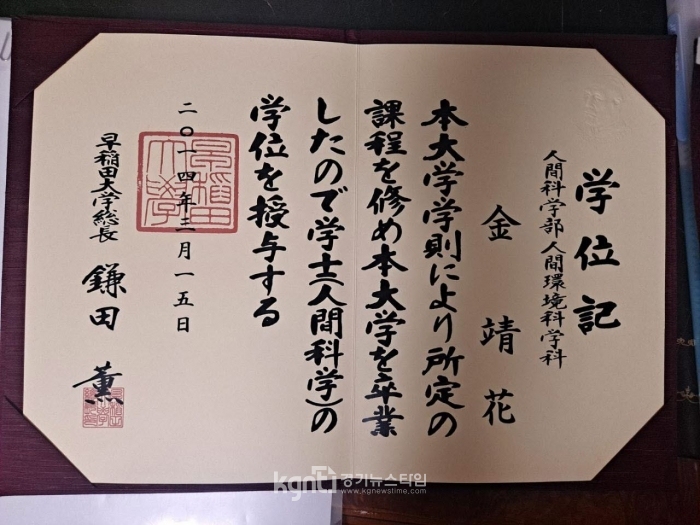 学位記
人間科学部人間環境科学科
金靖花
本大学学則により所定の
課程を修め本大学を卒業
したので学士(人間科学)の
学位を授与する
二〇一四年三月一五日
早稲田大学総長 鎌田薫
kgnti 경기뉴스타임
www.kgnewstime.com